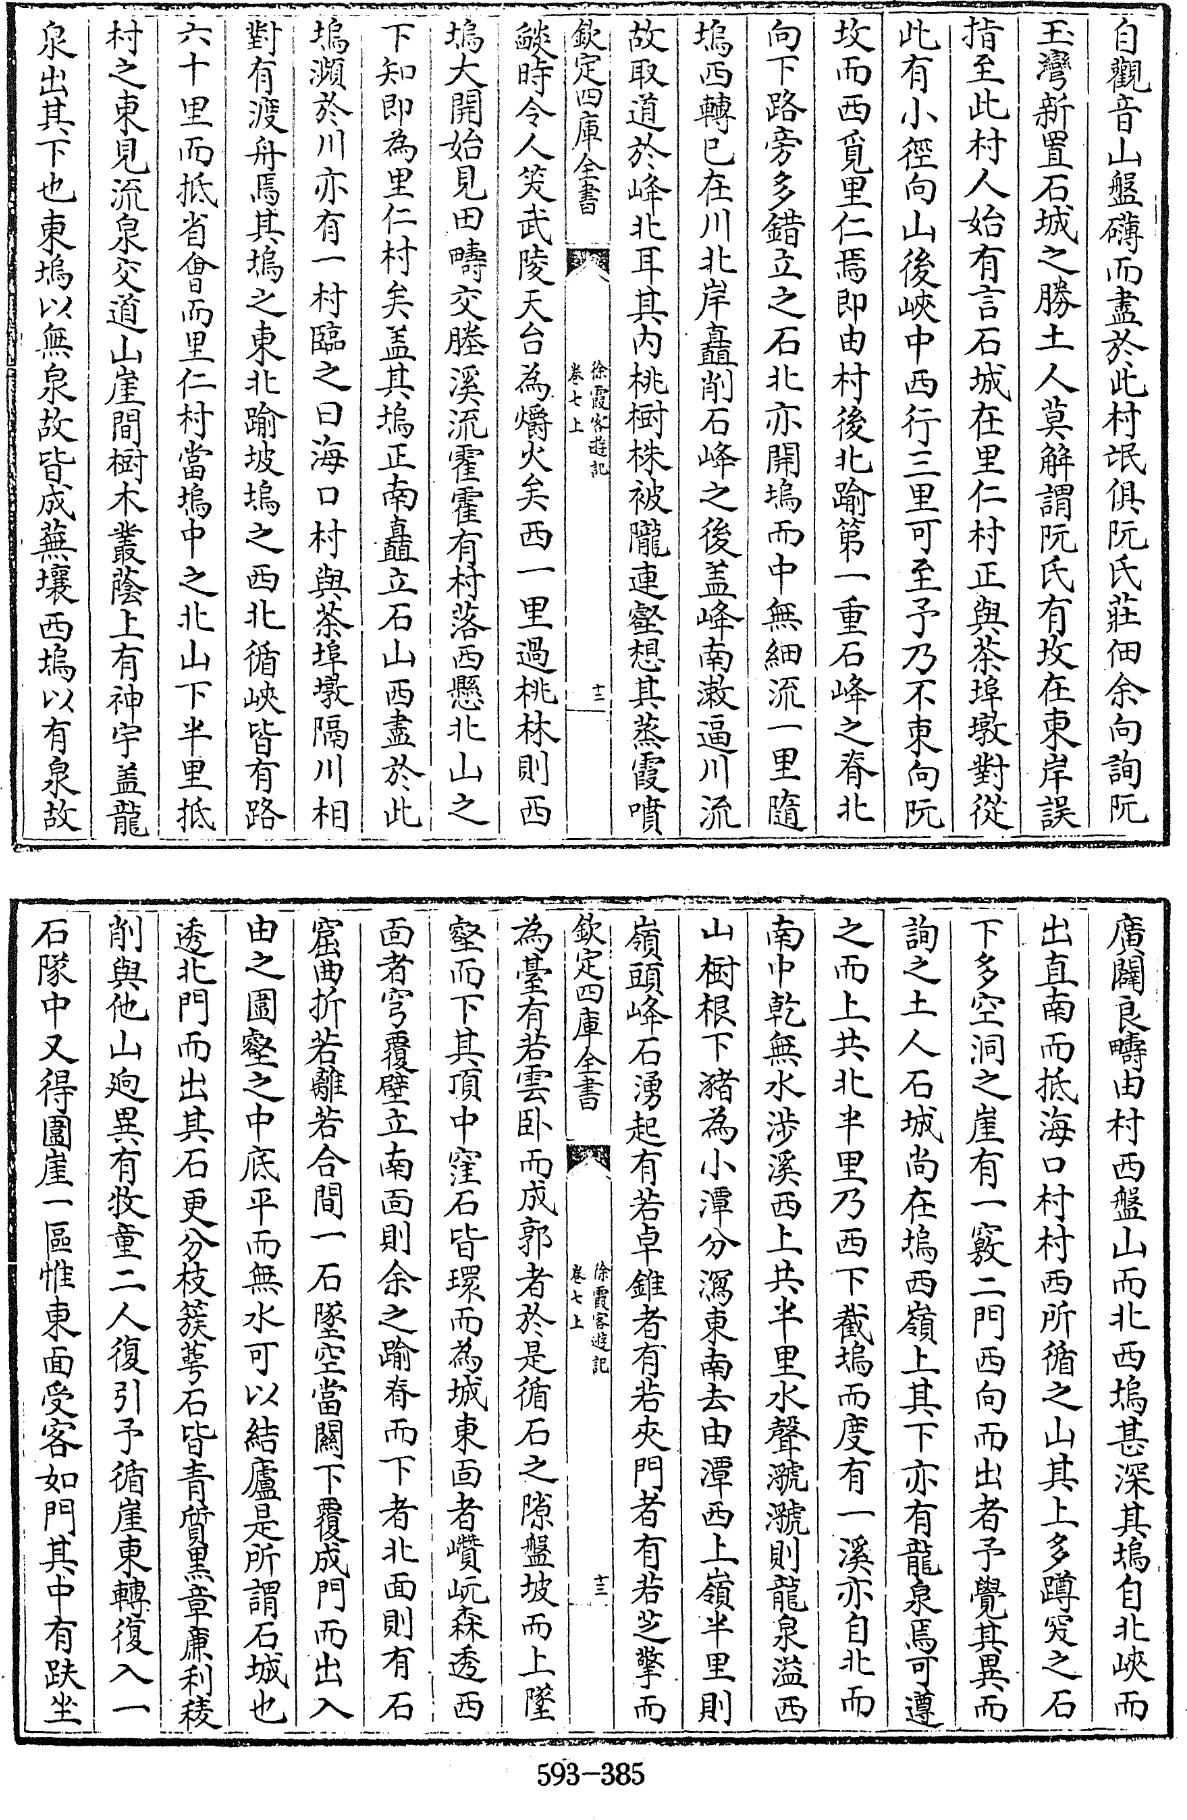 自觀音山盤礴而盡於此村氓俱阮氏莊佃余向詢阮
玉灣新置石城之勝土人莫解謂阮氏有坟在東岸誤
指至此村人始有言石城在里仁村正與茶埠墩對從
此有小徑向山後峽中西行三里可至予乃不東向阮
坟而西覓里仁焉即由村後北踰第一重石峰之脊北
向下路旁多錯立之石北亦開塢而中無細流一里隨
塢西轉已在川北岸矗削石峰之後盖峰南漱逼川流
故取道於峰北耳其内桃樹株被隴連壑想其蒸霞噴
欽定四庫全書
徐霞客遊記
卷七上
十二
燄時令人笑武陵天台為爝火矣西一里過桃林則西
塢大開始見田疇交塍溪流霍霍有村落西懸北山之
下知即為里仁村矣盖其塢正南矗立石山西盡於此
塢瀕於川亦有一村臨之曰海口村與茶埠墩隔川相
對有渡舟焉其塢之東北踰坡塢之西北循峽皆有路
六十里而抵省會而里仁村當塢中之北山下半里抵
村之東見流泉交道山崖間樹木叢蔭上有神宇盖龍
泉出其下也東塢以無泉故皆成蕪壤西塢以有泉故
廣闢良疇由村西盤山而北西塢甚深其塢自北峽而
出直南而抵海口村村西所循之山其上多蹲突之石
下多空洞之崖有一竅二門西向而出者予覺其異而
詢之土人石城尚在塢西嶺上其下亦有龍泉焉可遵
之而上共北半里乃西下截塢而度有一溪亦自北而
南中乾無水涉溪西上共半里水聲㶁㶁則龍泉溢西
山樹根下瀦為小潭分瀉東南去由潭西上嶺半里則
嶺頭峰石湧起有若卓錐者有若夾門者有若芝擎而
欽定四庫全書
徐霞客遊記
卷七上
十三
為臺有若雲卧而成郭者於是循石之隙盤坡而上墜
壑而下其頂中窪石皆環而為城東面者巑岏森透西
面者穹覆壁立南面則余之踰脊而下者北面則有石
窟曲折若離若合間一石墜空當關下覆成門而出入
由之圍壑之中底平而無水可以結廬是所謂石城也
透北門而出其石更分枝簇萼石皆青質黑章廉利稜
削與他山逈異有牧童二人復引予循崖東轉復入一
石隊中又得圍崖一區惟東面受客如門其中有趺坐
593-385